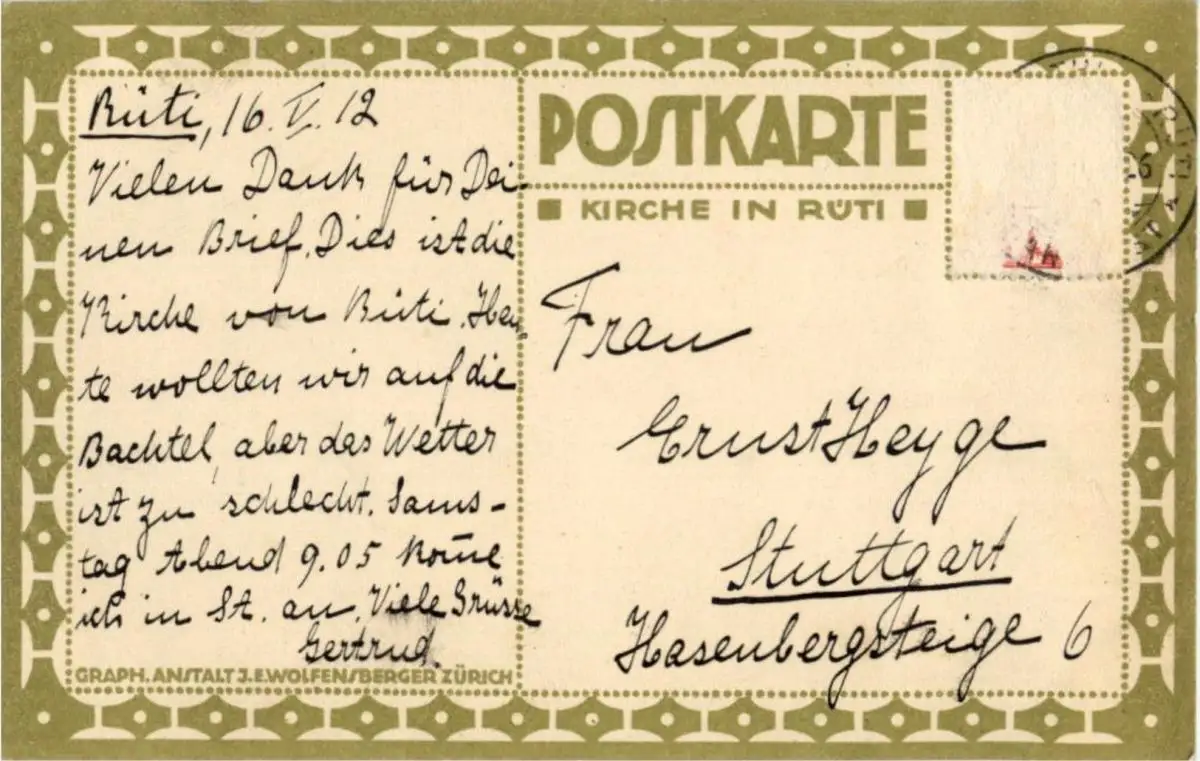 Rüti, 16. V. 12
Vielen Dank für Dei-
nen Brief. Dies ist die
Kirche von Rüti. Heu-
te wollten wir auf die
Bachtel, aber das Wetter
ist zu schlecht. Sams-
tag Abend 9.05 kom̅e
ich in St. an. Viele Grüsse
Gertrud.
GRAPH. ANSTALT J.E.WOLFENSBERGER ZÜRICH
POSTKARTE
KIRCHE IN RÜTI
Frau
Ernst Heyge
Stuttgart
Hasenbergsteige 6